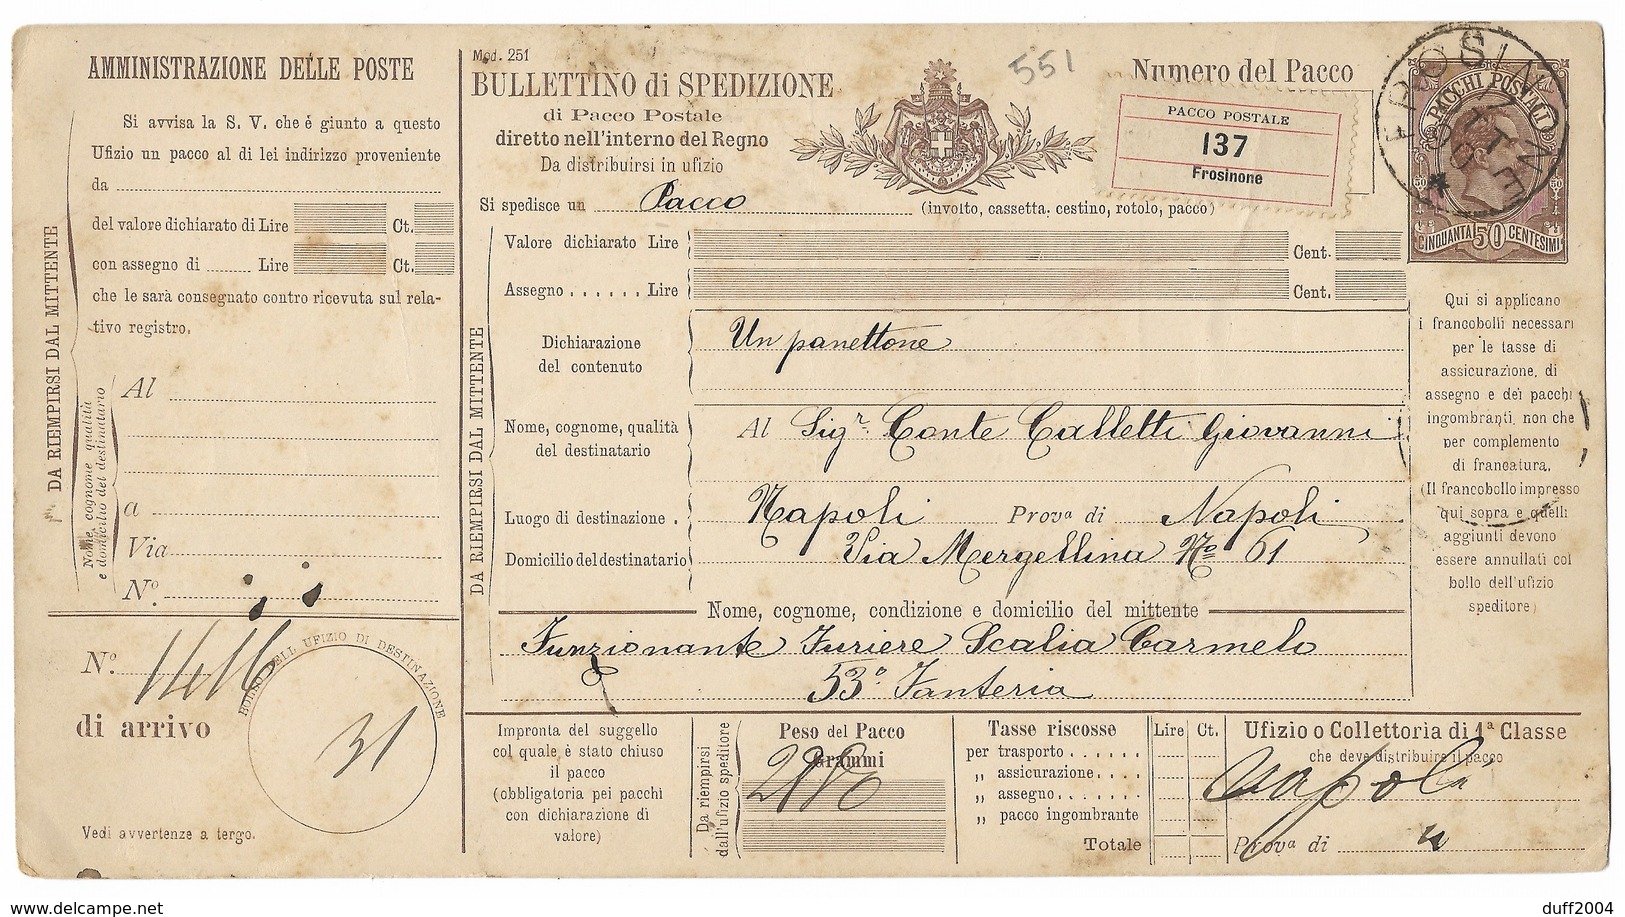 AMMINISTRAZIONE DELLE POSTE
Si avvisa la S. V. che è giunto a questo
Ufizio un pacco al di lei indirizzo proveniente
da
del valore dichiarato di Lire Ct.
con assegno di Lire Ct.
che le sarà consegnato contro ricevuta sul rela-
tivo registro.
DA RIEMPIRSI DAL MITTENTE
Nome, cognome qualità
e domicilio del destinatario
Al
a
Via
N.º
N.º 1416
di arrivo
BOLLO DELL UFIZIO DI DESTINAZIONE
31
Vedi avvertenze a tergo.
Mod. 251
BULLETTINO di SPEDIZIONE
di Pacco Postale
diretto nell'interno del Regno
Da distribuirsi in ufizio
551
Numero del Pacco
PACCO POSTALE
137
Frosinone
FROSINONE
PACCHI POSTALI
50 50
CINQUANTA 50 CENTESIMI
Si spedisce un Pacco (involto, cassetta, cestino, rotolo, pacco)
DA RIEMPIRSI DAL MITTENTE
Valore dichiarato Lire Cent.
Assegno . . . . . . Lire Cent.
Dichiarazione
del contenuto
Un panettone
Nome, cognome, qualità
del destinatario
Al Sigr. Conte Calletti Giovanni
Luogo di destinazione . Napoli Provª di Napoli
Domicilio del destinatario Via Mergellina No 61
Nome, cognome, condizione e domicilio del mittente
Funzionante Furiere Scalia Carmelo
53º Fanteria
Qui si applicano
i francobolli necessari
per le tasse di
assicurazione, di
assegno e dei pacchi
ingombranti, non che
per complemento
di francatura.
(Il francobollo impresso
qui sopra e quelli
aggiunti devono
essere annullati col
bollo dell'ufizio
speditore)
Impronta del suggello
col quale è stato chiuso
il pacco
(obbligatoria pei pacchi
con dichiarazione di
valore)
Da riempirsi
dall'ufizio speditore
Peso del Pacco
Grammi
Tasse riscosse Lire Ct.
per trasporto . . . . . .
„ assicurazione. . . .
„ assegno . . . . . . .
„ pacco ingombrante
Totale
Ufizio o Collettoria di 1ª Classe
che deve distribuire il pacco
Napoli
Provª di "
delcampe.net
duff2004